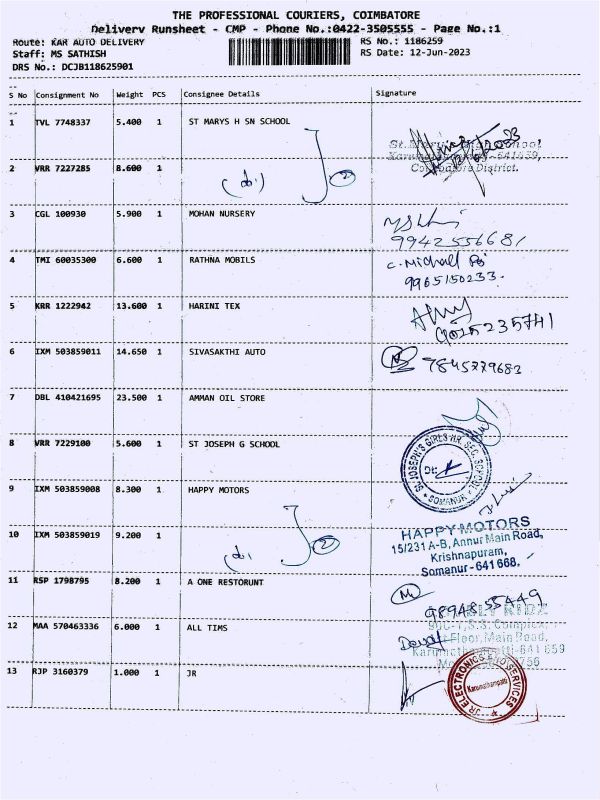 THE PROFESSIONAL COURIERS, COIMBATORE
Delivery Runsheet - CMP - Phone No.:0422-3505555 - Page No.:1
Route: KAR AUTO DELIVERY
RS No.: 1186259
Staff: MS SATHISH
RS Date: 12-Jun-2023
DRS No.: DCJB118625901
S No Consignment No Weight PCS Consignee Details Signature
1 TVL 7748337 5.400 1 ST MARYS H SN SCHOOL
Coimbatore District.
2 VRR 7227285 8.600 1
3 CGL 100930 5.900 1 MOHAN NURSERY
9942556681
4 TMI 60035300 6.600 1 RATHNA MOBILS
C. Michall
9965150233.
5 KRR 1222942 13.600 1 HARINI TEX
9025235741
6 IXM 503859011 14.650 1 SIVASAKTHI AUTO
7845779683
7 DBL 410421695 23.500 1 AMMAN OIL STORE
8 VRR 7229100 5.600 1 ST JOSEPH G SCHOOL
ST. JOSEPH'S GIRLS HR. SEC. SCHOOL
Dt:
SOMANUR
9 IXM 503859008 8.300 1 HAPPY MOTORS
10 IXM 503859019 9.200 1
HAPPY MOTORS
15/231 A-B, Annur Main Road,
Krishnapuram,
Somanur - 641 668.
11 RSP 1798795 8.200 1 A ONE RESTORUNT
98948 55449
12 MAA 570463336 6.000 1 ALL TIMS
KIDZ
S.S. Complex,
Floor, Main Road,
Karumathampatti-641 659
13 RJP 3160379 1.000 1 JR
JR ELECTRONICS AND SERVICES
Karumathampatti